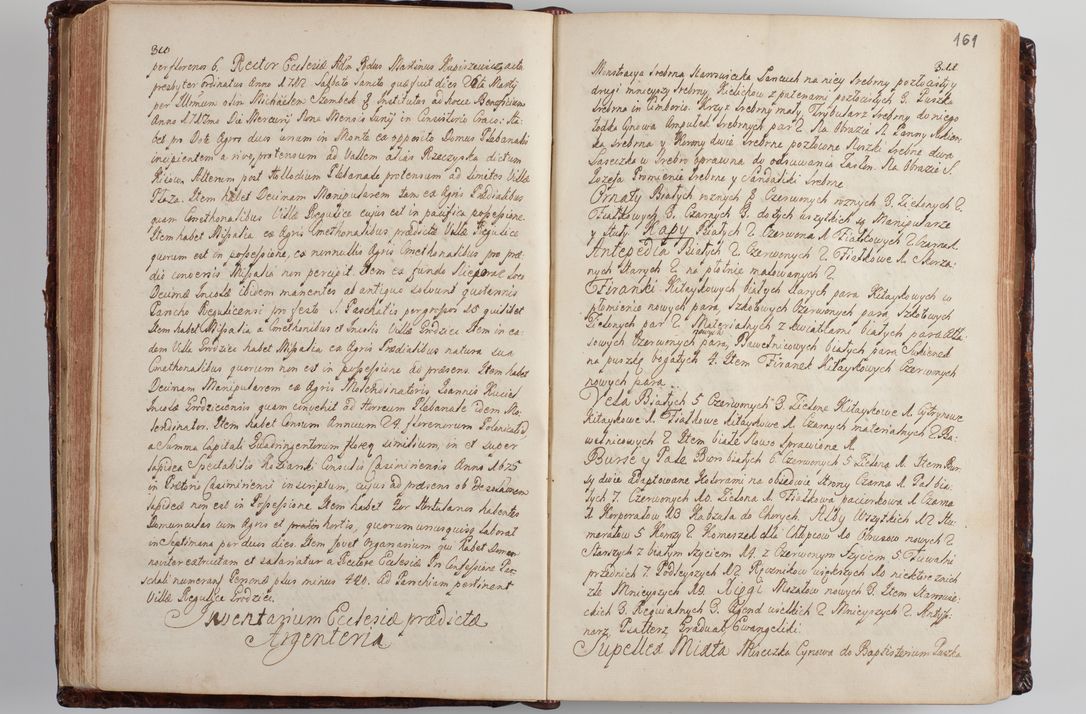 310
per florenos 6. Rector Ecclesiæ Adm. Rdus Martinus
presbyter ordinatus Anno 1712 Sabbato Sancto qui fuit dies 26ta Martij
per Illmum olim Michaelem Szembek & Institutus ad hocce Beneficium
Anno 1717mo Die Mercurij 2nona Mensis Junij in Consistorio Crac: Ha-
bet pro Dote Agri duos unum in Monte ex opposito Domus Plebanalis
incipientem a rivo, protensum ad Vallem alias Rzeczyska dictum
Alterum post Allodium Plebanale protensum ad limites Villæ
Płaza. Item habet Decimam Manipularem tam ex Agris Prædialibus
quam Cmethonalibus Villæ Regulice cujus est in pacifica possessione.
Item habet Missalia ex Agris Cmethonalibus prædictæ Villæ Regulice
quorum est in possessione, ex nonnullis Agris Cmethonalibus pro præ-
dio conversis Missalia non percipit. Item ex fundo loco
Decimæ Incolæ ibidem manentes ab antiquo solvunt quotannis
Parocho Regulicensi pro festo S. Paschatis per grossos 15 quilibet
Item habet Missalia a Cmethonibus et Incolis Villæ Grodzice Item in ea-
dem Villa Grodzice habet Missalia ex Agris Prædialibus natura sua
Cmethonalibus quorum non est in possessione ad præsens. Item habet
Decimam Manipularem ex Agris Molendinatoris Joannis
Incolæ Grodzicensis quam convehit ad Horreum Plebanale idem Mo-
lendinator. Item habet Censum Annuum 28 florenorum Polonicaliū,
a Summa Capitali Quadringentorum florenorum similium, in et super
lapidea Spectabilis Consulis Casimiriensis Anno 1625
in Prætorio Casimiriensi inscriptam, cujus ad præsens ob desolationem
lapideæ non est in Possessione. Item habet Hortulanos habentes
Domunculas cum Agris et pratis hortis, quorum unusquisq laborat
in Septimana per duos dies. Item fovet Organarium qui habet Domum
noviter extructam et salariatur a Rectore Ecclesiæ In Confessione Pas-
chali numerantur Personæ plus minus 420. Ad Parochiam pertinent
Villæ Regulice Grodzice.
Inventarium Ecclesiæ prædictæ
Argenteria
161
311
Monstracya srebrna Staroswiecka Lancuch na niey Srebrny pozłocisty y
drugi mnieyszy Srebrny, Kielichow z patenami pozłocistych 3. Puszka
Srebrna in Ciborio. Krzyz Srebrny mały, Trybularz Srebrny do niego
łodka Cynowa Ampułek Srebrnych par 2. Na Obrazie N. Panny Sukien-
ka srebrna y Korony dwie Srebrne pozłocone srebrne dwa
Tarczka w Srebro oprawna do odsuwania Zasłon. Na Obrazie S.
Jozefa Promienie Srebrne y Sandałki srebrne
Ornaty Białych roznych 8 Czerwonych roznych 3. Zielonych 2.
Fiałkowych 3. Czarnych 3. do tych wszystkich są Manipularze
y Stuły. Kapy Białych 2 Czerwona 1. Fiałkowych 2 Czarna 1.
Antepedia Białych 2. Czerwonych 2. Fiałkowe 1. Skorza-
nych Starych 2. na płotnie malowanych 2.
Firanki Kitaykowych białych starych para Kitaykowych w
płomienie nowych para, Czerwonych para,
Zielonych par 2. Materialnych z kwiatkami białych para Atła-
sowych Czerwonych para, nowych Bawełnicowych białych para Sukienek
na puszkę bogatych 4. Item Firanek Kitaykowych Czerwonych
nowych para.
Vela Białych 5 Czerwonych 3. Zielone Kitaykowe 1. Cytrynowe
Kitaykowe 1. Fiałkowe Kitaykowe 1. Czarnych materialnych 2. Ba-
wełnicowych 2. Item białe Nowo Sprawione 1.
Bursy y Palle Burs białych 6. Czerwonych 5. Zielona 1. Item Bur-
sy dwie adaptowane Kolorami na obiedwie strony Czarna 1. Pal bia-
łych 7. Czerwonych 10. Zielona 1. Fiałkowa paciorkowa 1. Czarna
1. Korporałow 13 Kabzała do Chorych. Alby Wszystkich 12 Hu-
merałow 5 Komzy 2 Komeszek dla Chłopcow 10 Obrusow nowych 2
Starszych z białym Szyciem 14. z Czerwonym Szyciem 5. Tuwalni
przednich 7. Podleyszych 12 Ręcznikow większych 10 niektore z nich
złe Mnieyszych 10. Xięgi Mszałow nowych 3. Item Starowie-
ckich 3. Requialnych 3. Agend wielkich 2. Mnieyszych 2. Antyfo-
narz, Psałterz, Graduał, Ewangeliki.
Supellex Mixta Miseczka Cynowa do Baptisterium Puszka